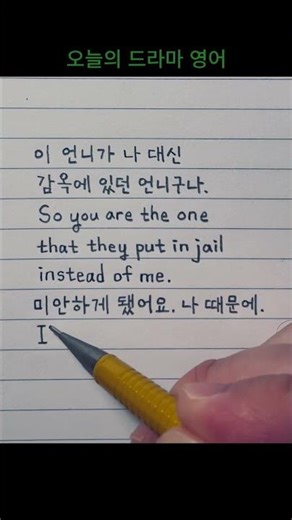 오늘의 드라마 영어
이 언니가 나 대신
감옥에 있던 언니구나.
So you are the one
that they put in jail
instead of me.
미안하게 됐어요. 나 때문에.
I